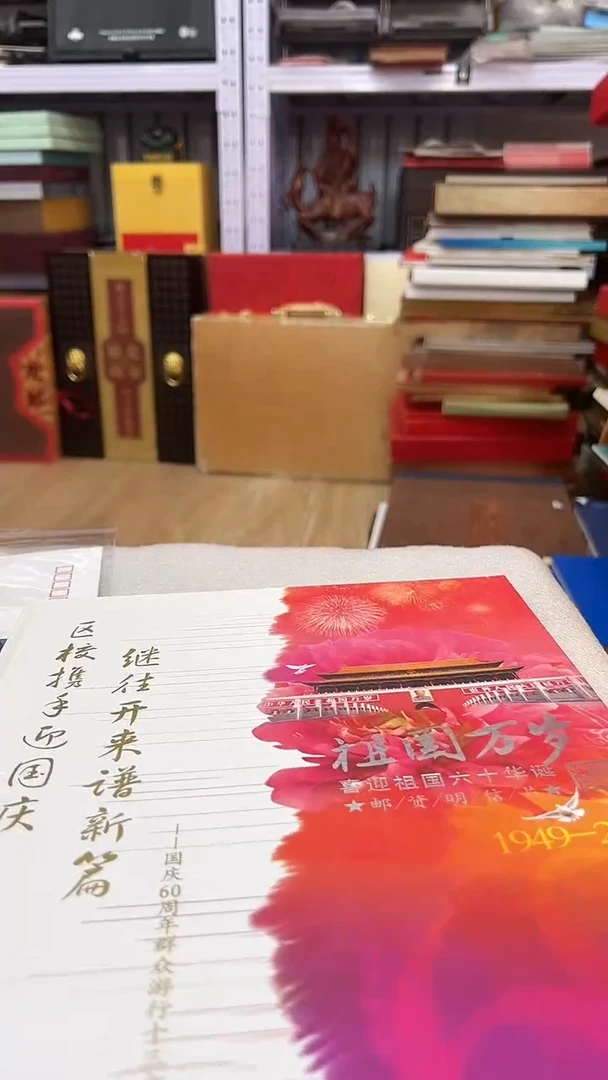 区校携手迎国庆
继往开来谱新篇
——国庆60周年群众游行十三
祖国万岁
喜迎祖国六十华诞
★邮/资/明/信/片★
1949-2